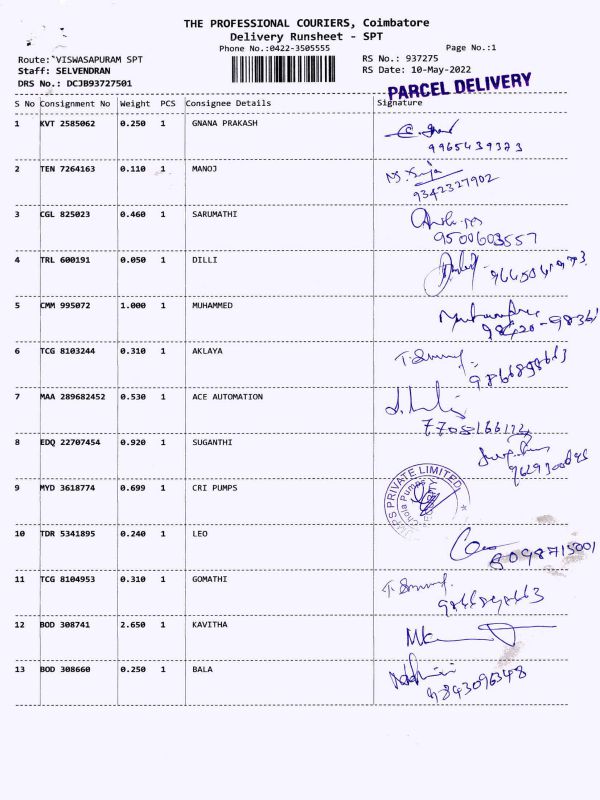 THE PROFESSIONAL COURIERS, Coimbatore
Delivery Runsheet - SPT
Phone No.:0422-3505555
Page No.:1
Route: VISWASAPURAM SPT
RS No.: 937275
Staff: SELVENDRAN
RS Date: 10-May-2022
DRS No.: DCJB93727501
PARCEL DELIVERY
S No Consignment No Weight PCS Consignee Details Signature
1 KVT 2585062 0.250 1 GNANA PRAKASH
9965439373
2 TEN 7264163 0.110 1 MANOJ
9342327902
3 CGL 825023 0.460 1 SARUMATHI
9500603557
4 TRL 600191 0.050 1 DILLI
5 CMM 995072 1.000 1 MUHAMMED
6 TCG 8103244 0.310 1 AKLAYA
9866898663
7 MAA 289682452 0.530 1 ACE AUTOMATION
8 EDQ 22707454 0.920 1 SUGANTHI
9 MYD 3618774 0.699 1 CRI PUMPS
PRIVATE LIMITED
10 TDR 5341895 0.240 1 LEO
8098715001
11 TCG 8104953 0.310 1 GOMATHI
9866898663
12 BOD 308741 2.650 1 KAVITHA
13 BOD 308660 0.250 1 BALA
9843096348